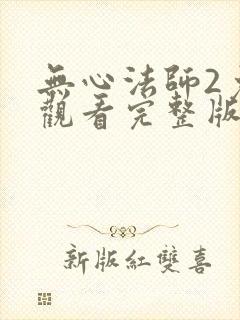 無心法師2
觀看完整版
新版紅雙喜